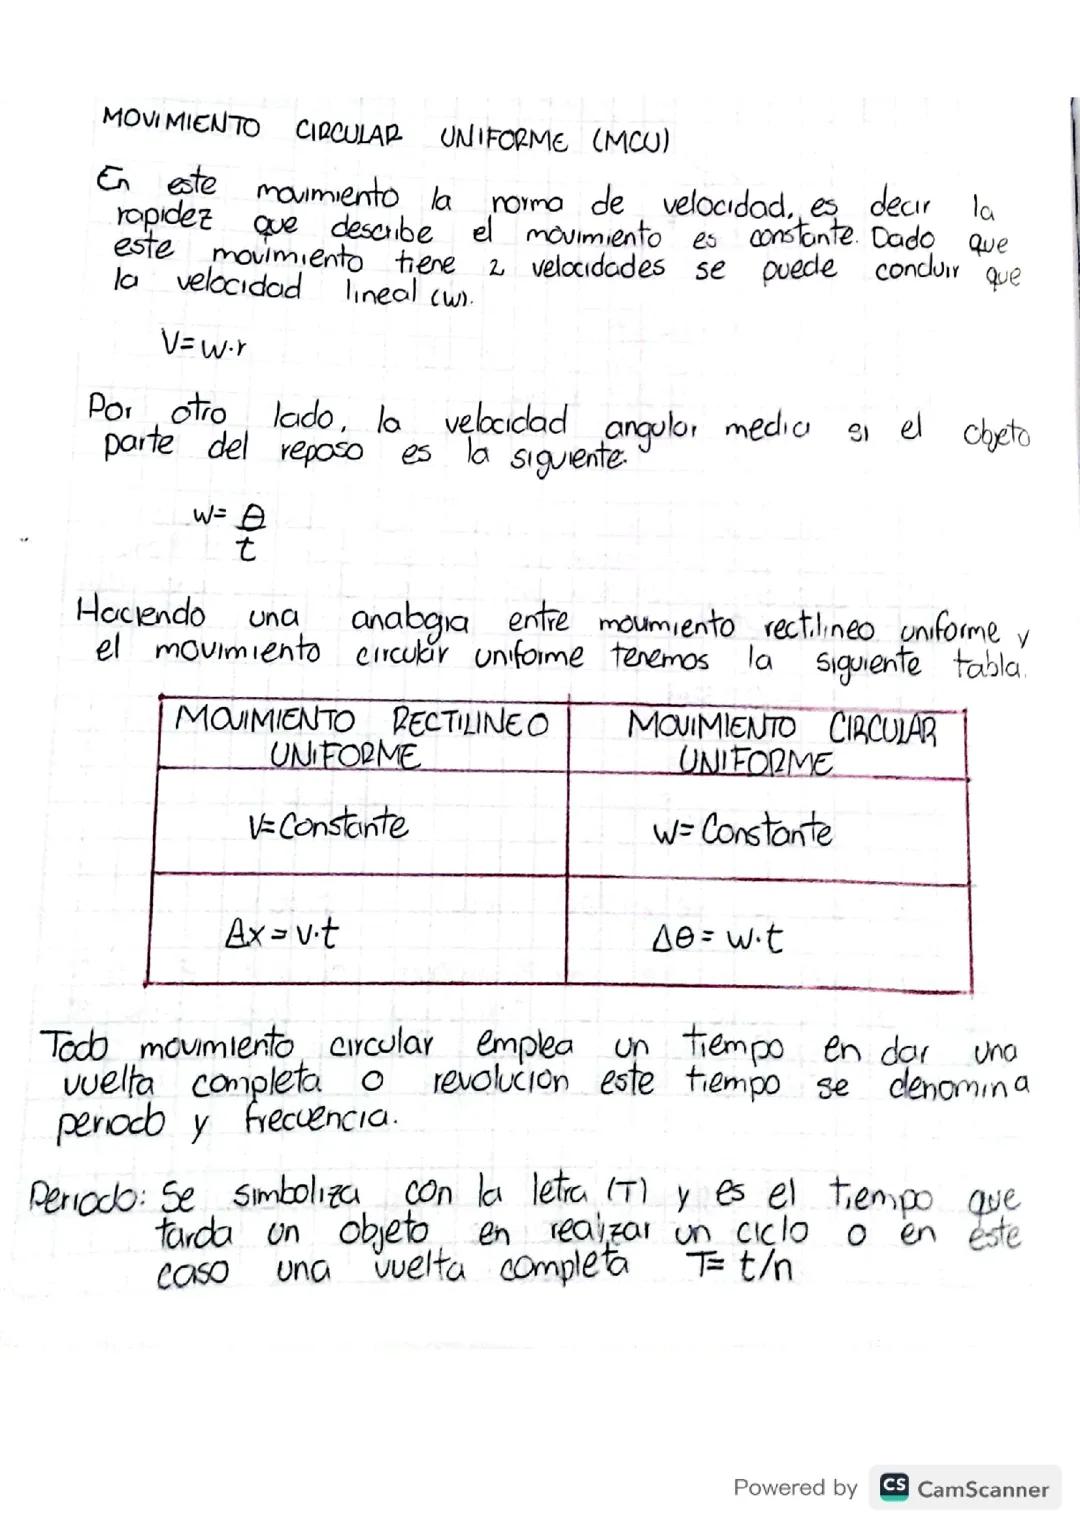 MOVIMIENTO CIRCULAR UNIFORME (MCU)
En este movimiento la norma de velocidad, es decir la
rapidez que describe el movimiento es constante. Dado que
este movimiento tiene 2 velocidades se puede concluir que
la velocidad lineal (w).
V= w·r
Por otro lado, la velocidad angular media si el objeto
parte del reposo es la siguiente.
w= θ
t
Haciendo una analogia entre movimiento rectilineo uniforme y
el movimiento circular uniforme tenemos la siguiente tabla.
MOVIMIENTO RECTILINEO
UNIFORME
MOVIMIENTO CIRCULAR
UNIFORME
V= Constante
w= Constante
Δx = v·t
Δθ = w·t
Todo movimiento circular emplea un tiempo en dar una
vuelta completa o revolucion este tiempo se denomina
periodo y frecuencia.
Periodo: Se simboliza con la letra (T) y es el tiempo que
tarda un objeto en realizar un ciclo o en este
caso una vuelta completa T= t/n
Powered by CS CamScanner